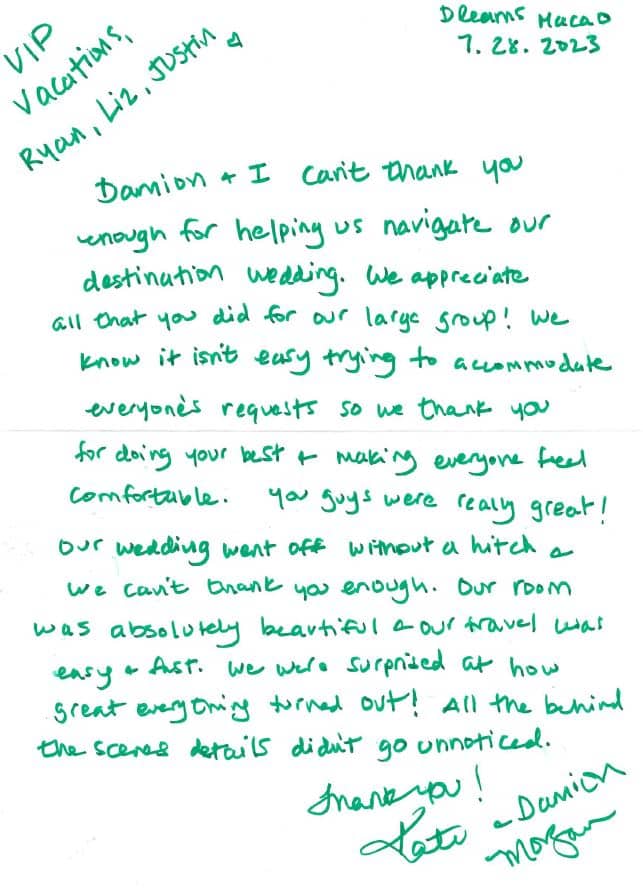 Dreams Macao
7.28.2023
VIP
Vacations,
Ryan, Liz, Justin
Damion + I can't thank you
enough for helping us navigate our
destination wedding. We appreciate
all that you did for our large group! We
know it isn't easy trying to accommodate
everyone's requests so we thank you
for doing your best + making everyone feel
comfortable. You guys were realy great!
Our wedding went off without a hitch &
we can't thank you enough. Our room
was absolutely beautiful & our travel was
easy + fast. We were surprised at how
great everything turned out! All the behind
the scenes details didn't go unnoticed.
Thank you!
Kate & Damion
Morgan